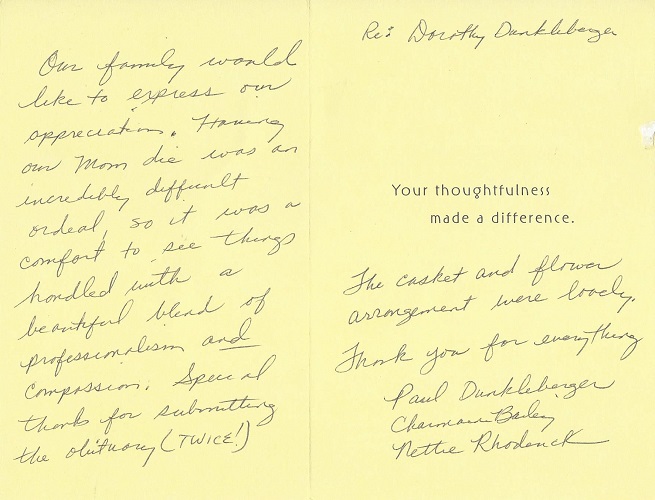 Our family would
like to express our
appreciation. Having
our Mom die was an
incredibly difficult
ordeal, so it was a
comfort to see things
handled with a
beautiful blend of
professionalism and
compassion. Special
thanks for submitting
the obituary (TWICE!)
Re: Dorothy Dunkleberger
Your thoughtfulness
made a difference.
The casket and flower
arrangement were lovely.
Thank you for everything
Paul Dunkleberger
Charmain Bailey
Nettie Rhoderick